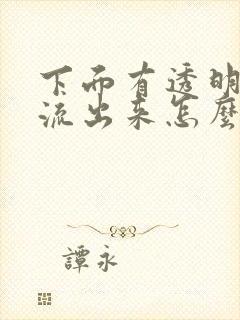 下而有透明
流出来怎麼
譚永